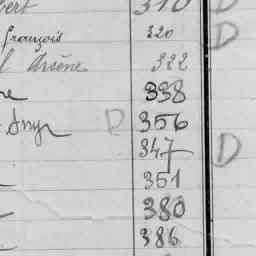 bert 310 D
françois 320 D
l Arsène 322
re 338
D 356
347 D
351
380
386